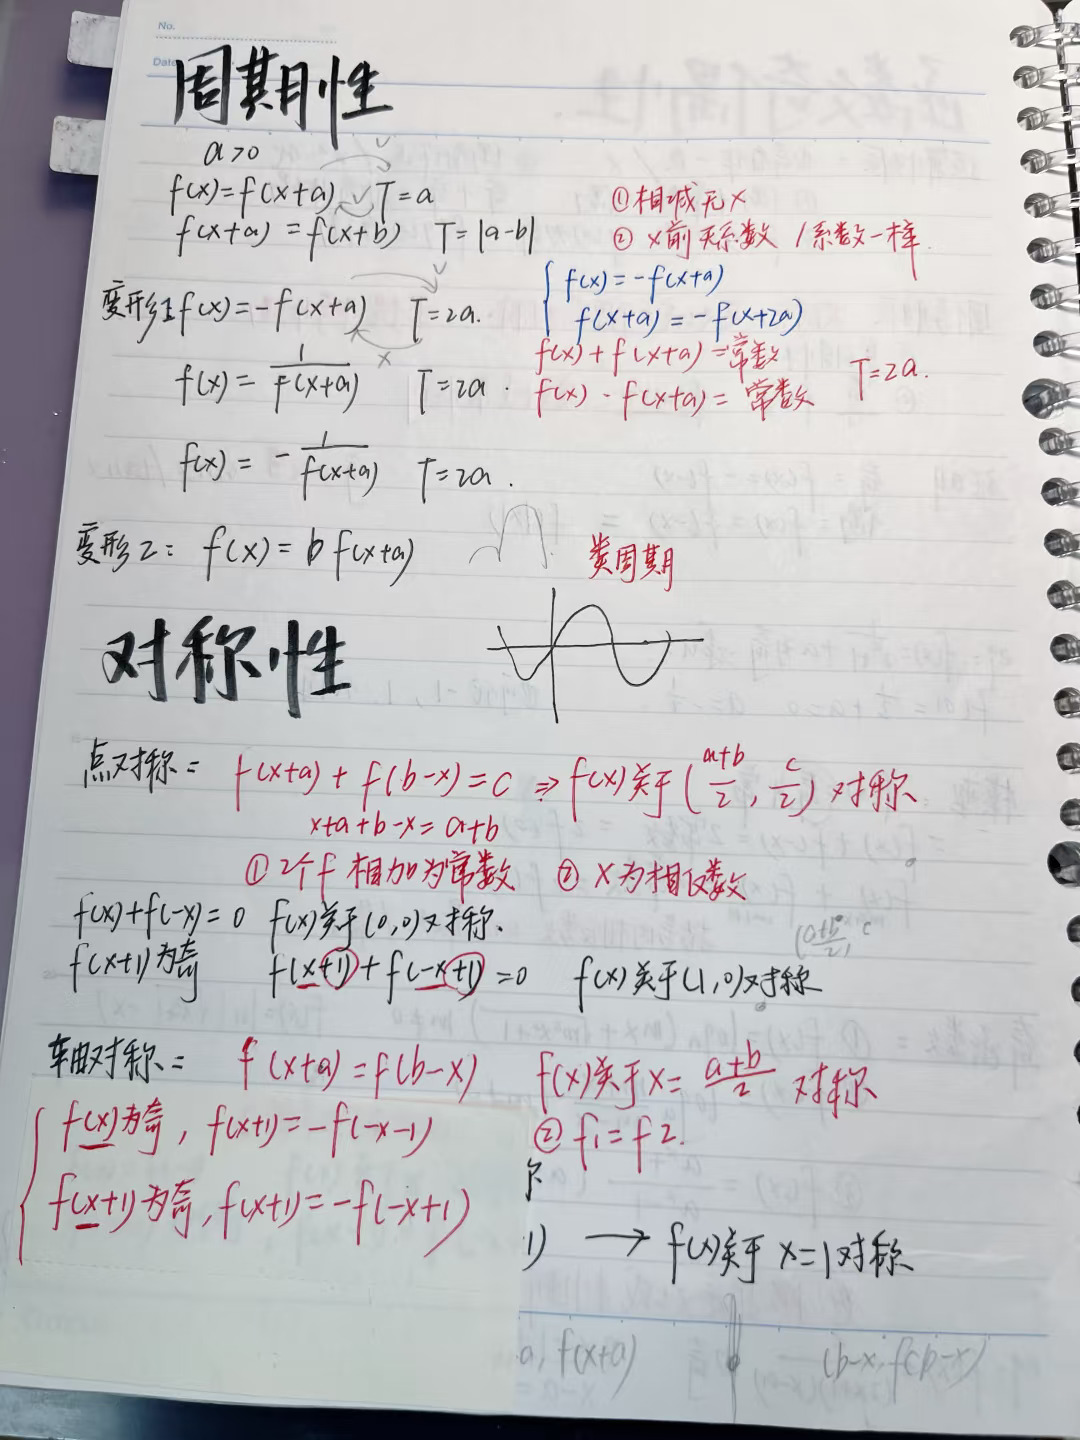 No.
Date
周期性
a>0
f(x)=f(x+a) T=a
f(x+a)=f(x+b) T=|a-b|
①相减无x
②x前系数 1系数一样.
变形1: f(x)=-f(x+a) T=2a.
{ f(x)=-f(x+a)
f(x+a)=-f(x+2a)
f(x)=1/f(x+a) T=2a.
f(x)+f(x+a)=常数
f(x)·f(x+a)=常数 T=2a.
f(x)=-1/f(x+a) T=2a.
变形2: f(x)=bf(x+a)
类周期
对称性
点对称: f(x+a)+f(b-x)=c ⇒ f(x)关于(a+b/2, c/2)对称
x+a+b-x=a+b
①2个f相加为常数 ②x为相反数
f(x)+f(-x)=0 f(x)关于(0,0)对称.
f(x+1)为奇 f(x+1)+f(-x+1)=0 f(x)关于(1,0)对称
轴对称: f(x+a)=f(b-x) f(x)关于x=a+b/2对称
②f1=f2.
{ f(x)为奇, f(x+1)=-f(-x-1)
f(x+1)为奇, f(x+1)=-f(-x+1)
1) → f(x)关于x=1对称
a, f(x+a) (b-x, f(b-x))